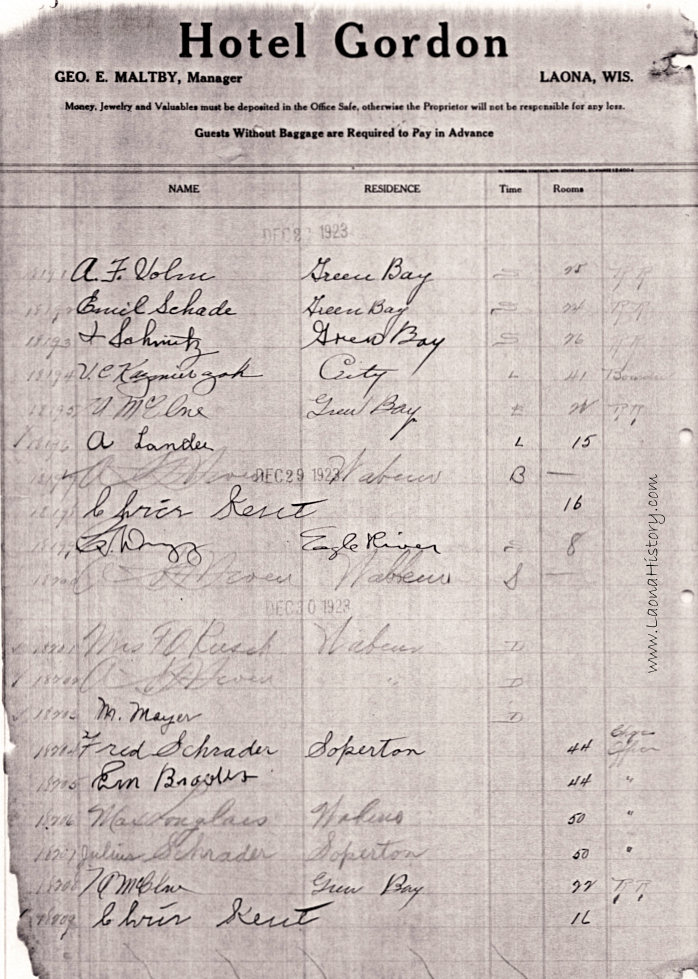 Hotel Gordon
GEO. E. MALTBY, Manager LAONA, WIS.
Money, Jewelry and Valuables must be deposited in the Office Safe, otherwise the Proprietor will not be responsible for any loss.
Guests Without Baggage are Required to Pay in Advance
NAME RESIDENCE Time Rooms
DEC 1923
18191 A. F. Volm Green Bay S 25 RR
18192 Emil Schade Green Bay S 24 RR
18193 Schmitz Green Bay S 26 RR
18194 V. C. Kazmierczak City L 41
18195 McElne Green Bay RR
A Lander L 15
A DEC 29 1923 Wabeno B —
Chris Kent 16
Eagle River S 8
A Wabeno S —
DEC 30 1923
18201 Mrs F O Rusch Wabeno D
18202 A " D
18203 M. Mayer D
18204 Fred Schrader Soperton 44
18205 Em Brooks 44 "
18206 Max Douglas Wabeno 50 "
18207 Julius Schrader Soperton 50 "
18208 McElne Green Bay 22 RR
18209 Chris Kent 16
www.LaonaHistory.com